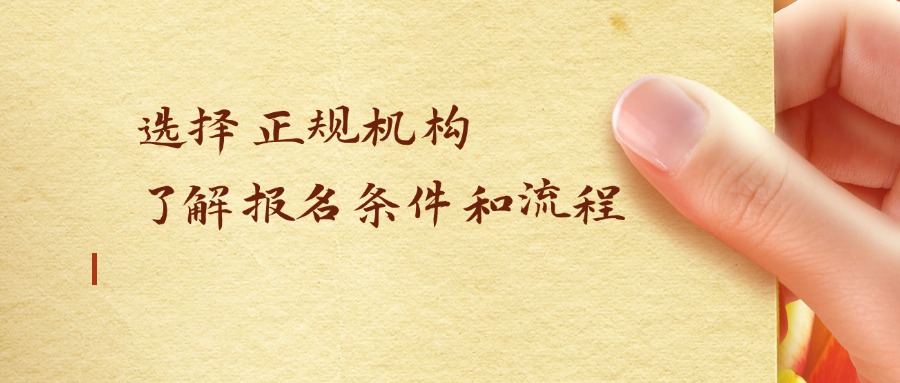 选择正规机构
了解报名条件和流程